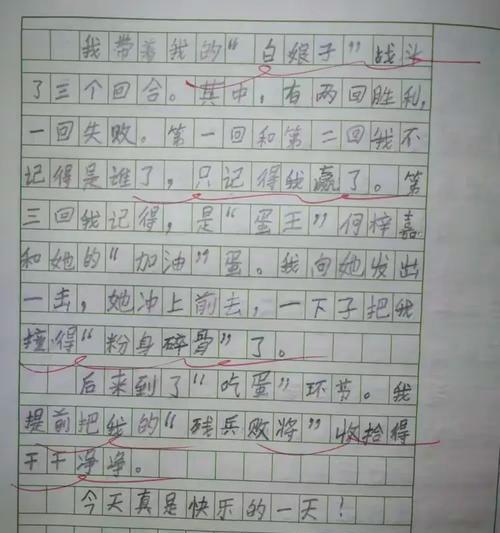 我带着我的“白娘子”战斗
了三个回合。其中，有两回胜利，
一回失败。第一回和第二回我不
记得是谁了，只记得我赢了。第
三回我记得，是“蛋王”何梓嘉
和她的“加油”蛋。我向她发出
一击，她冲上前去，一下子把我
撞得“粉身碎骨”了。
后来到了“吃蛋”环节。我
提前把我的“残兵败将”收拾得
干干净净。
今天真是快乐的一天！